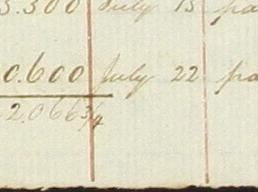 3.300 July 15 pa
0.600 July 22 pa
2.066 3/4